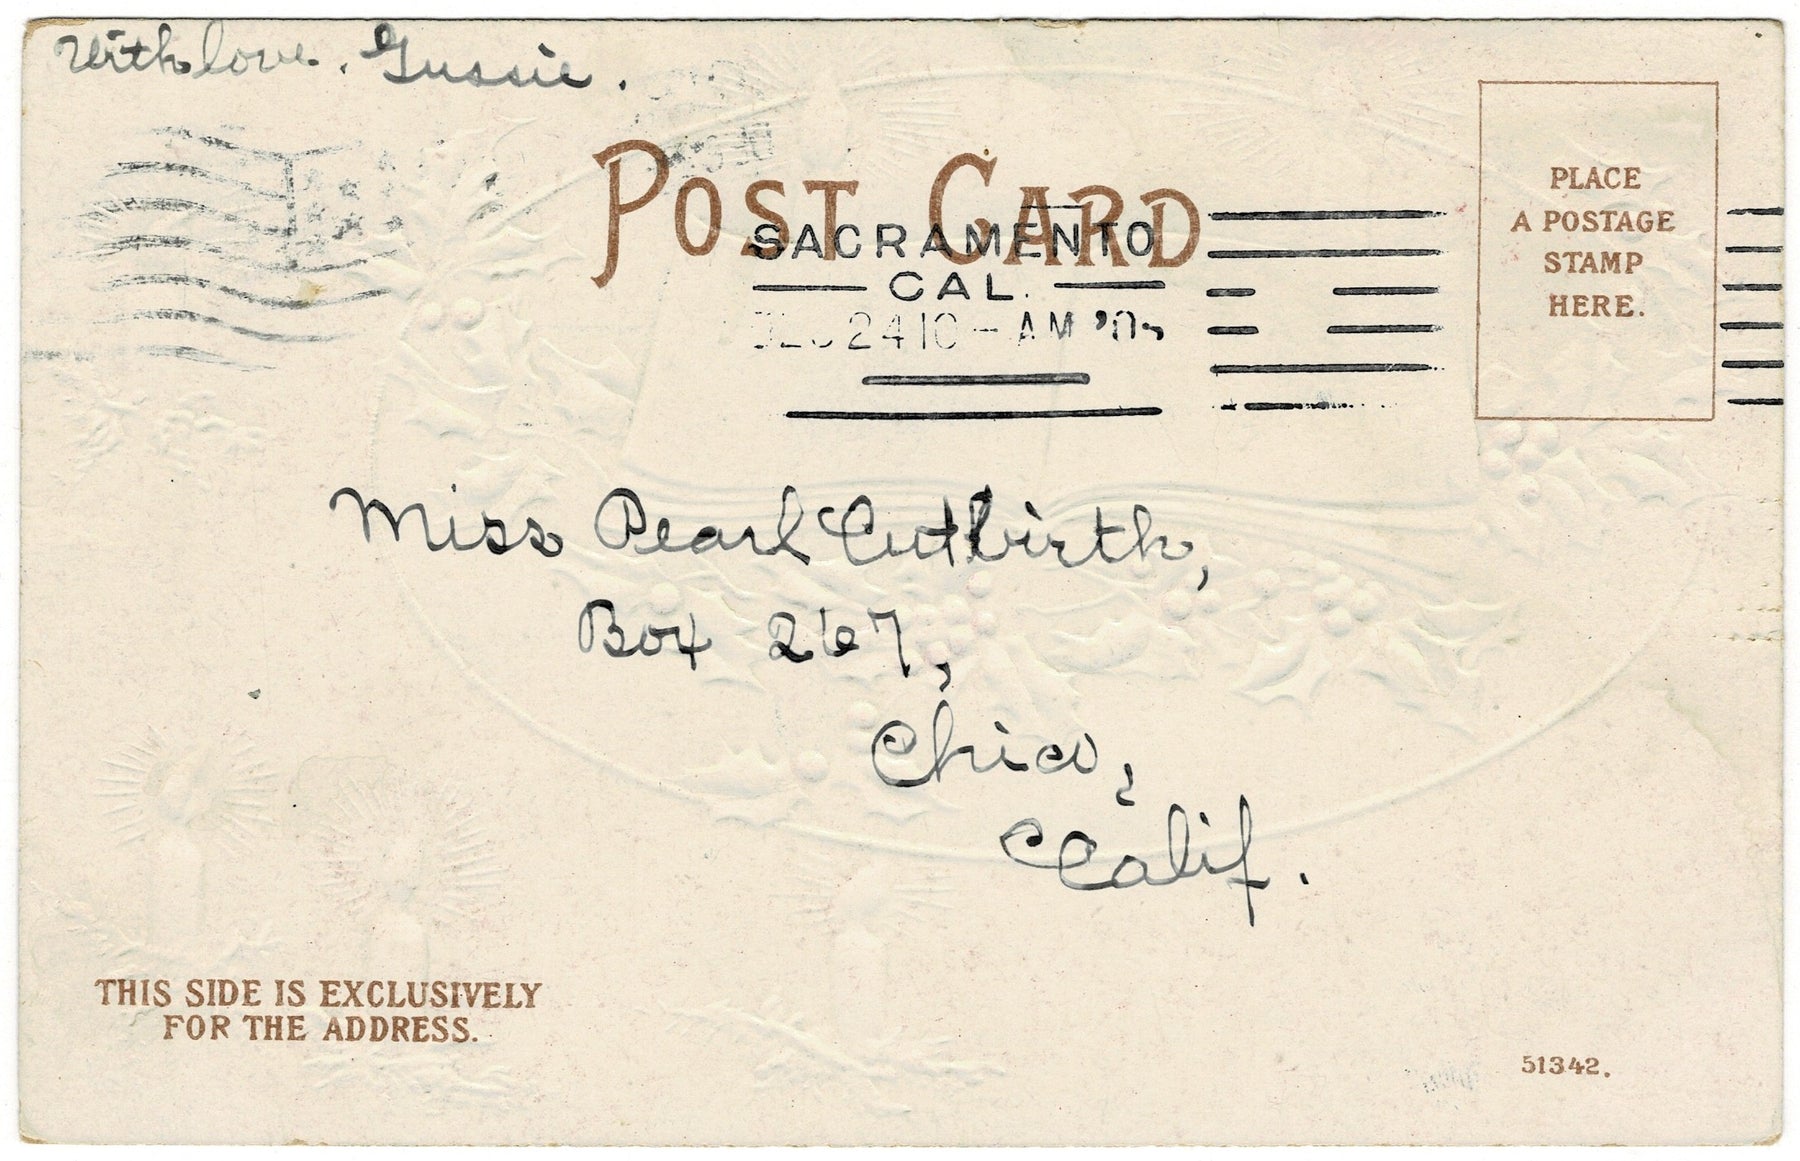 With love. Gussie.
POST CARD
SACRAMENTO
CAL.
DEC 24 10 - AM
PLACE
A POSTAGE
STAMP
HERE.
Miss Pearl Cutbirth,
Box 267,
Chico,
Calif.
THIS SIDE IS EXCLUSIVELY
FOR THE ADDRESS.
51342.